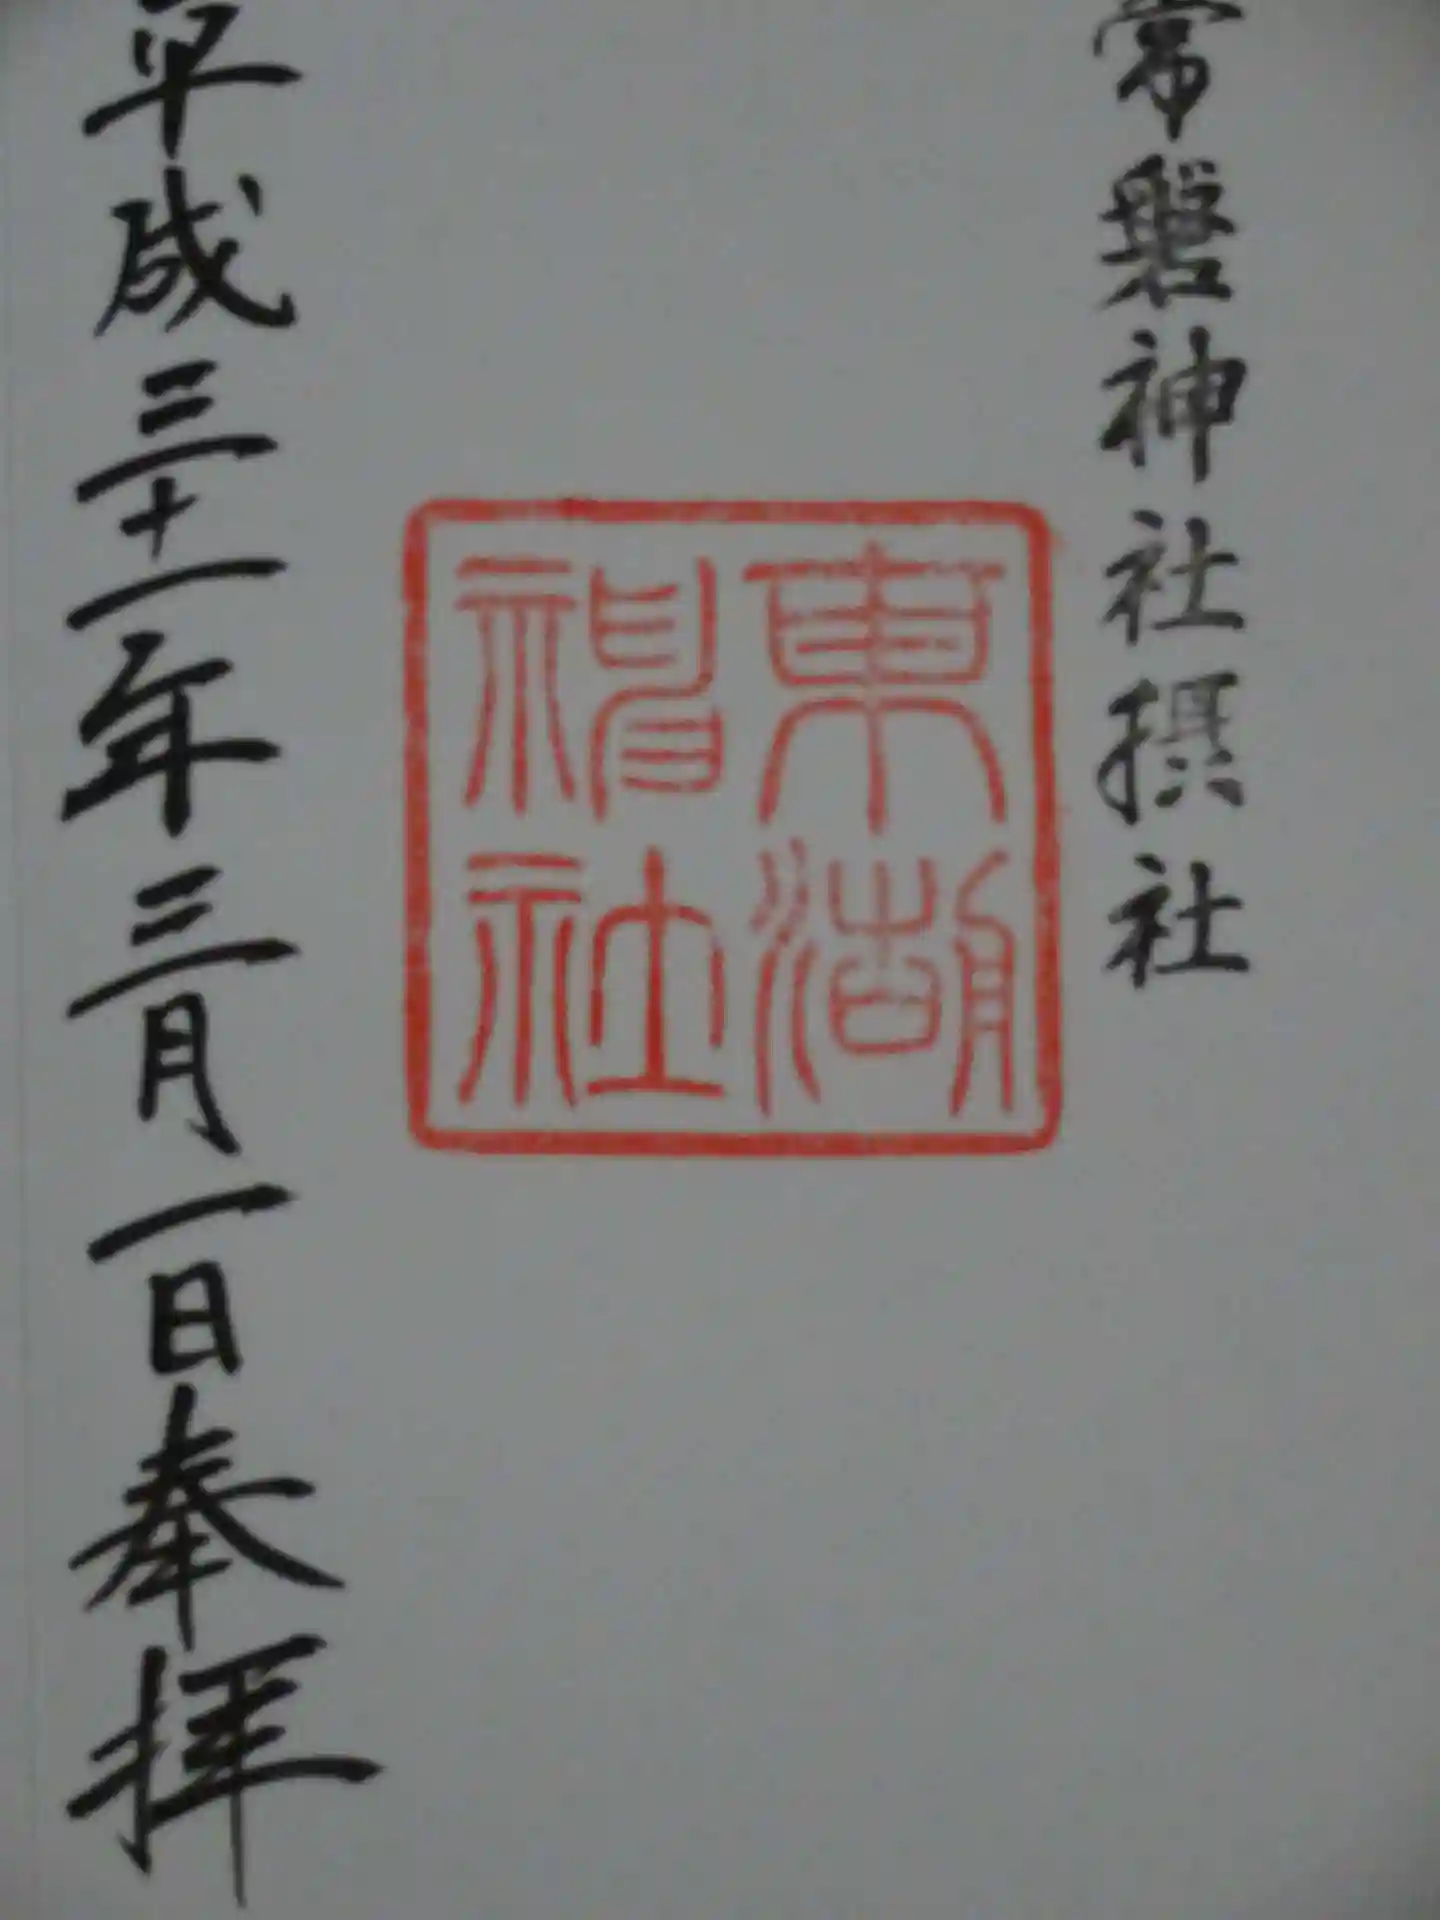 常磐神社摂社
東湖
神社
平成三十一年三月一日奉拝